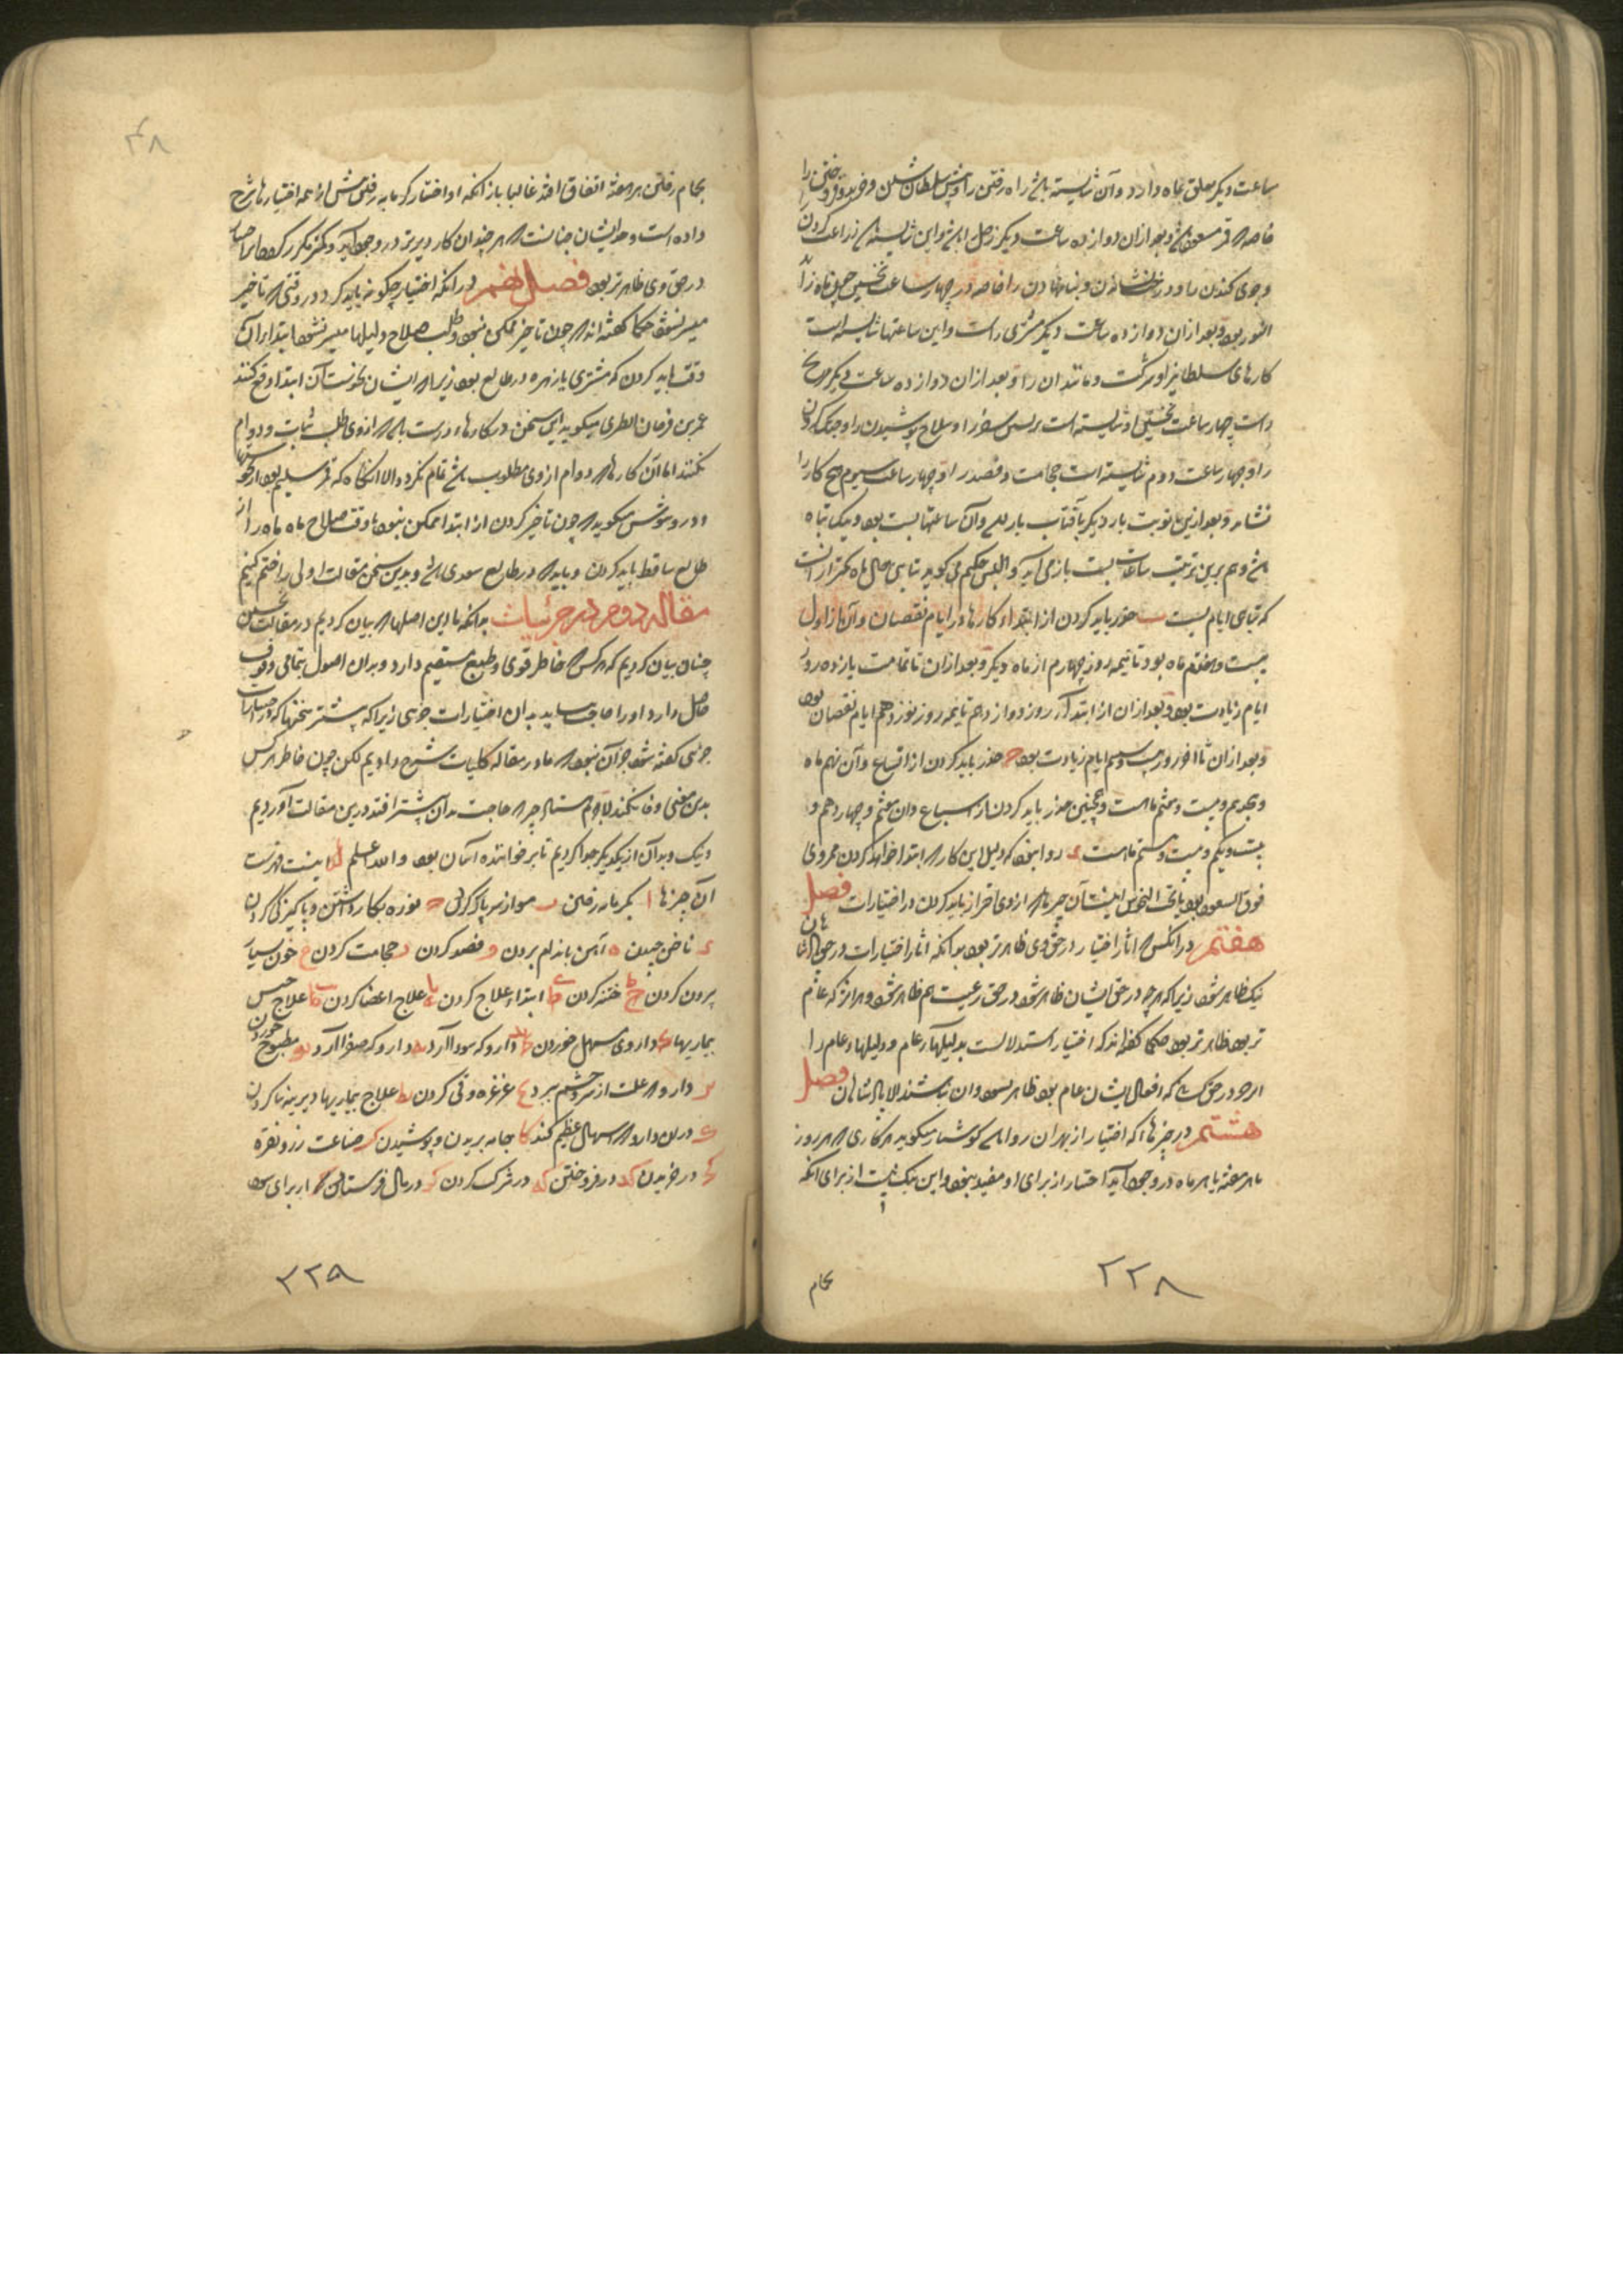 ساعت دیکر تعلق بماه دارد و آن شایسته باشد راه رفتن را و پیش سلطان شدن و خرید و فروختن را
خاصه که قمر مسعود باشد و بعد ازان دوازده ساعت دیکر زحل را باشد و این شایسته باشد زراعت کردن
و جوی کندن را و درخت نشاندن و بنا نهادن را خاصه در چهار ساعت نخستین چون ماه زاید
النور بود و بعد ازان دوازده ساعت دیکر مشتری راست و این ساعتها شایسته است
کارهای سلطانی را و شرکت و مانند ان را و بعد ازان دوازده ساعت دیکر مریخ
راست چهار ساعت نخستین او شایسته است سفر را و سلاح پوشیدن را و جنک کردن
را و چهار ساعت دوم شایسته است حجامت و فصد را و چهار ساعت سیوم هیچ کار را
نشاید و بعد ازین نوبت بار دیکر بآفتاب باز آید و آن ساعتها بست بود و یکی تباه
باشد و هم برین ترتیب ساعات بست باز می آید و والیس حکیم می کوید تباهی حال ماه کمتر از انست
که تباهی ایام بست ب حذر باید کردن از ابتداء کارها در ایام نقصان و آن از اول
بیست و هفتم ماه بود تا نیمه روز چهارم از ماه دیکر و بعد ازان تا تمامت یازده روز
ایام زیادت بود و بعد ازان از ابتداء روز دوازدهم تا نیمه روز نوزدهم ایام نقصان بود
و بعد ازان تا آخر روز بیست و ششم ایام زیادت بود ج حذر باید کردن از اتساع و آن نهم ماه
و هجدهم و بیست و هشتم ماهست و همچنین حذر باید کردن از اسباع و ان هفتم و چهاردهم و
بیست و یکم و بیست و هشتم ماهست د روا نبود که دلیل این کار که ابتدا خواهد کردن محروی
فوق السعود بود یا تحت النحوس اینست آن چیزها که ازوی احتراز باید کردن در اختیارات فصل
هفتم در آنکس که اثار اختیار در حق وی ظاهرتر بود بدانکه اثار اختیارات در حق پادشاهان
نیک ظاهر شود زیرا که هر چه در حق ایشان ظاهر شود در حق رعیت هم ظاهر شود و هر اثر که عام
تر بود ظاهرتر بود حکما کفته اند که اختیار استدلالست بدلیلهاء عام و دلیلهاء عام را
اثر جز در حق کسی که افعال ایشان عام بود ظاهر نشود و ان نباشند الا پادشاهان فصل
هشتم در چیزها که اختیار از بهر ان روا باشد کوشیار میکوید هر کاری که هر روز
یا هر هفته یا هر ماه در وجود آید اختیار از برای او مفید نبود و این نیک نیست از برای آنکه
بحام
۲۲۸
۴۸
بحام رفتن هر هفته اتفاق افتد غالبا باز آنکه او اختیار کرمابه رفتن پیش از همه اختیارها شرح
داده است و حد ایشان چنانست که هر چندان کار دیرتر در وجود آید و کمتر مکرر کردد اختیار
در حق وی ظاهرتر بود فصل نهم در انکه اختیار چکونه باید کرد در وقتی که تاخیر
میسر نشود حکما کفته اند که چون تاخیر ممکن نبود و طلب صلاح دلیلها میسر نشود ابتداء ان
وقت باید کردن که مشتری یا زهره در طالع بود زیرا که ایشان نحوست آن ابتدا دفع کنند
عمر بن فرخان الطبری میکوید این سخن در کارهاء درست باشد که ازوی طلب ثبات و دوام
نکنند اما آن کارها که دوام ازوی مطلوب باشد تمام نکردد الا آنکاه که قمر سلیم بود از نحوستها
و دروثیوس میکوید که چون تاخیر کردن از ابتدا ممکن نبود تا وقت صلاح ماه ماه را از
طالع ساقط باید کردن و باید که در طالع سعدی باشد و بدین سخن مقالت اولی را ختم کنیم
مقالت دوم در جزئیات بدانکه ما این اصلها که بیان کردیم در مقالت نخستین
چنان بیان کردیم که هر کس که خاطر قوی و طبع مستقیم دارد و بدان اصول بتمامی وقوف
حاصل دارد او را حاجت نیاید بدان اختیارات جزئی زیرا که بیشتر سخنها که در اختیارات
جزئی کفته شود جز آن نبود که ما در مقاله کلیات شرح دادیم لکن چون خاطر هر کس
بدین معنی وفا نکند لاجرم هشتاد چیز که حاجت بدان بیشتر افتد درین مقالت آوردیم
و نیک و بد آن از یکدیکر جدا کردیم تا بر خواننده آسان بود و الله اعلم اینست فهرست
آن چیزها ا بکرمابه رفتن ب موی از سر پاک کردن ج نوره بکار داشتن و پاکیزکی کردن
د ناخن چیدن ه آهن باندام بردن و فصد کردن ز حجامت کردن ح خون بسیار
برون کردن ط ختنه کردن ی ابتداء علاج کردن یا علاج اعضا کردن یب علاج جنس
بیماریها یج داروی مسهل خوردن ید دارو که سودا آرد یه دارو که صفرا آرد یو مطبوخ خوردن
یز دارو که علت از سر و چشم ببرد یح غرغره و قی کردن یط علاج بیماریها دیرینه کردن
ک دران دارو که اسهال عظیم کند کا جامه بریدن و پوشیدن کب صناعت زر و نقره
کج در خریدن کد در فروختن که در شرک کردن کو در مال فرستادن کز از برای سود
۲۲۹